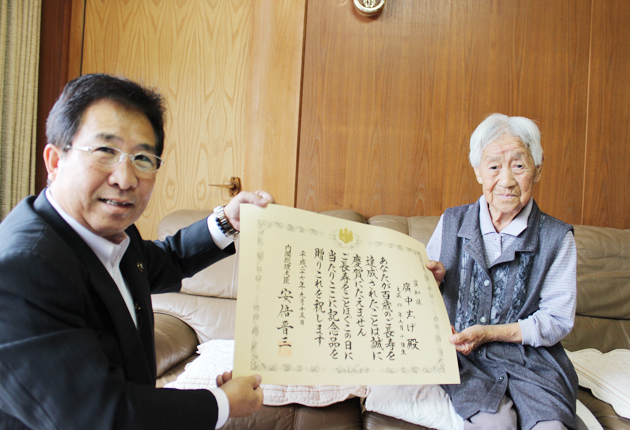 祝状
廣中たけ殿
大正四年八月十日生
あなたが百歳のご長寿を
達成されたことは誠に
慶賀にたえません
ご長寿をことほぐこの日に
当たりここに記念品を
贈りこれを祝します
平成二十七年九月十五日
内閣総理大臣 安倍晋三